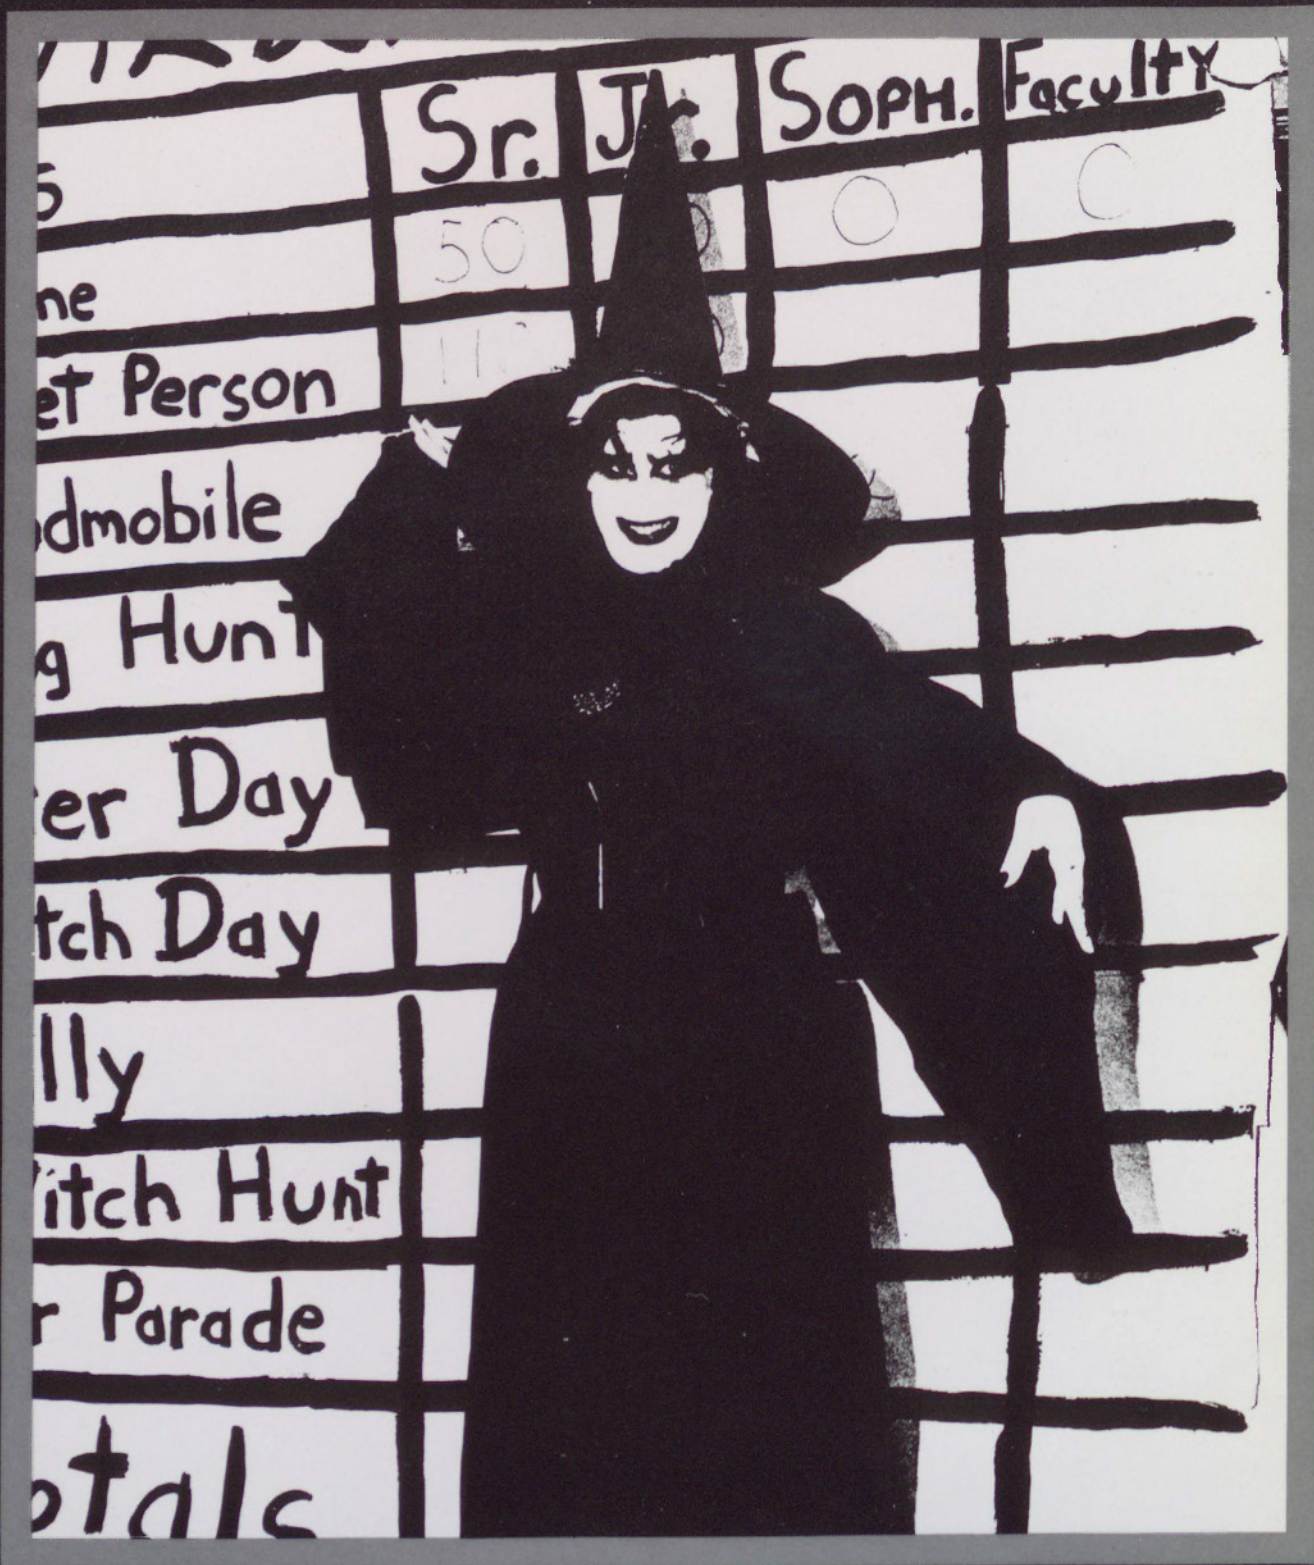 Sr. Jr. Soph. Faculty
50 0 0
ne
et Person
dmobile
g Hunt
er Day
tch Day
lly
itch Hunt
r Parade
otals